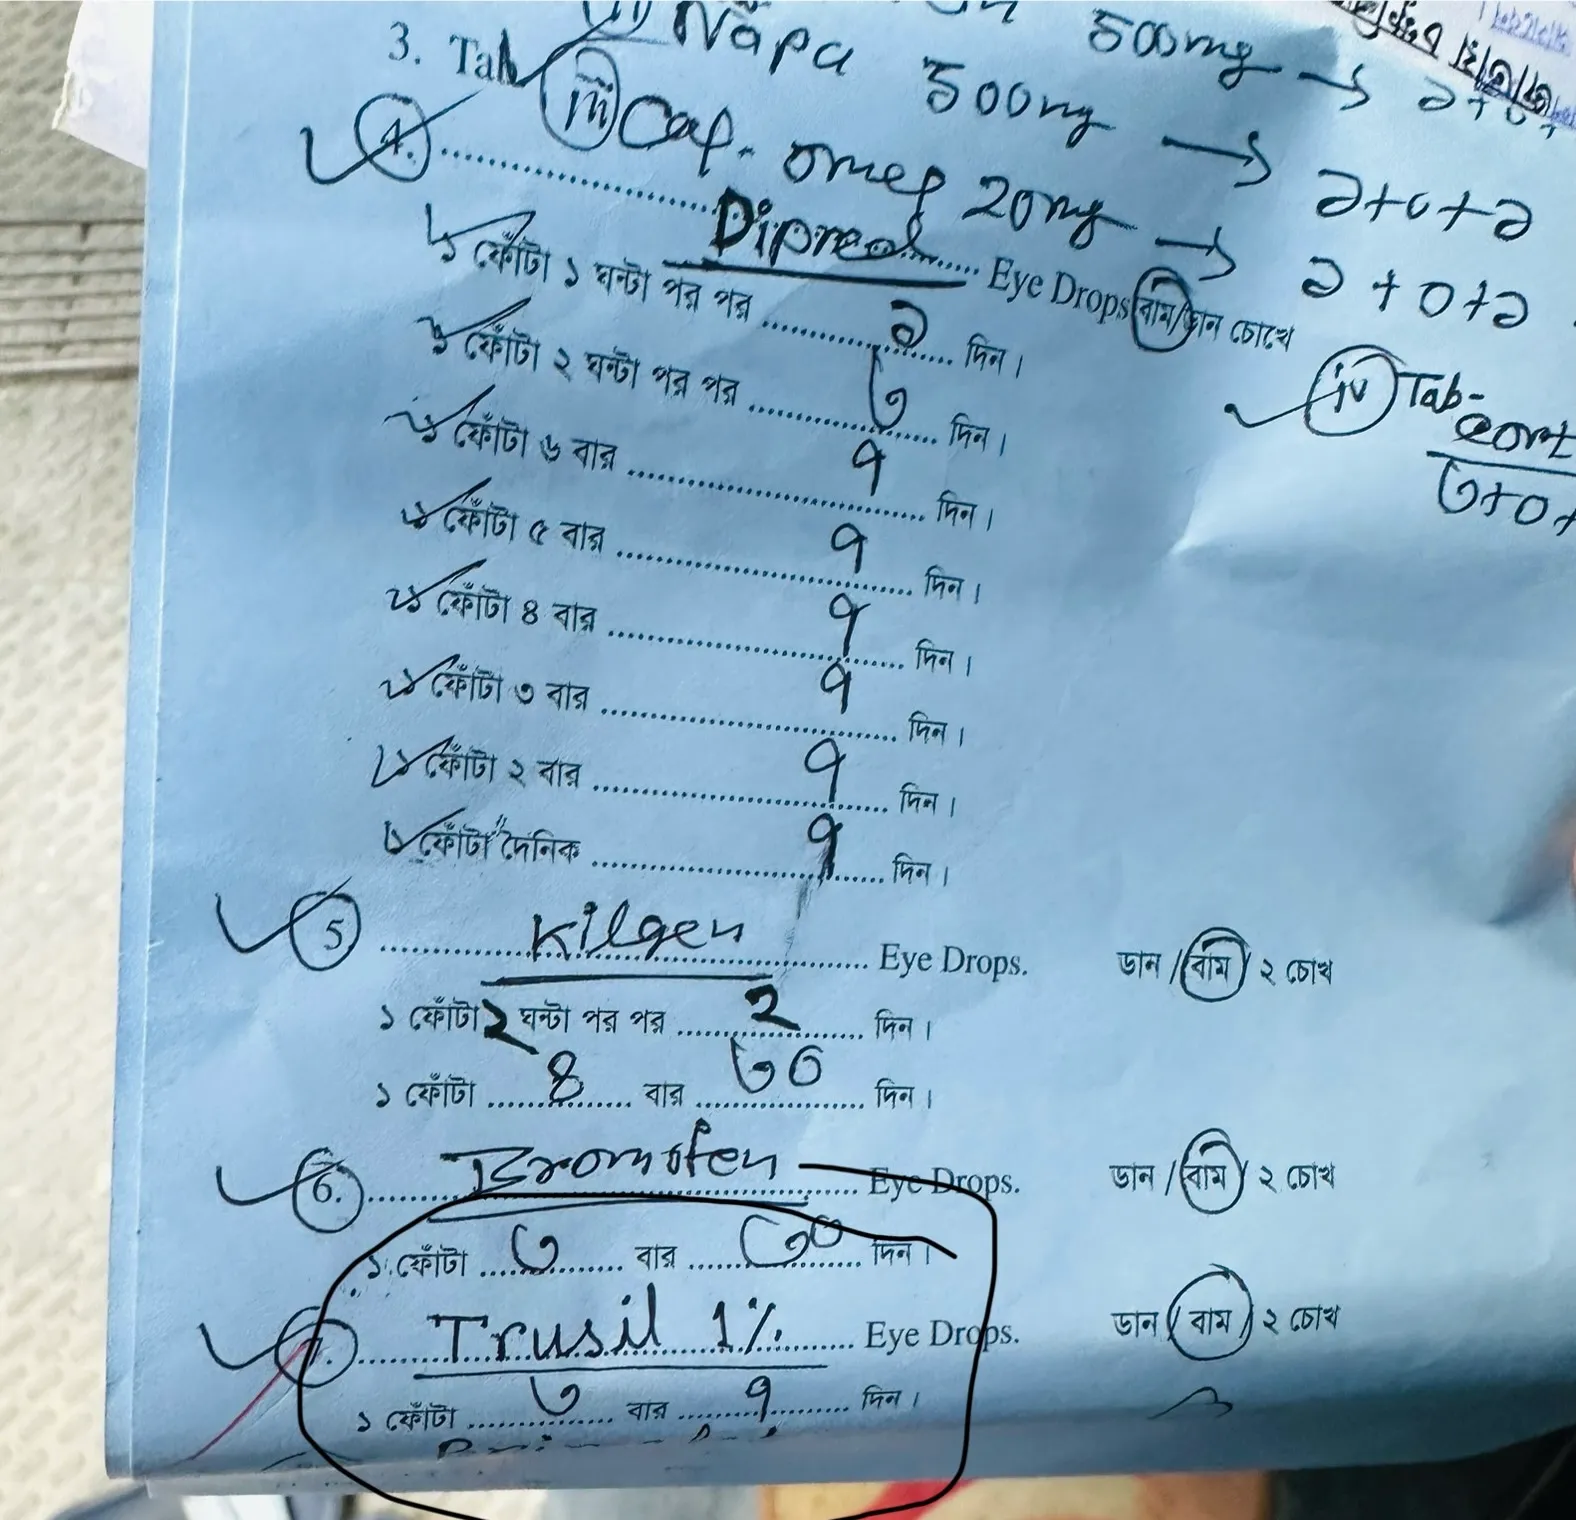 500mg →
3. Tab
ii) Napa 500mg → ১+০+১
iii) Cap. omep 20mg → ১+০+১
4. Dipred Eye Drops বাম/ডান চোখে
১ ফোঁটা ১ ঘন্টা পর পর ১ দিন।
১ ফোঁটা ২ ঘন্টা পর পর ৩ দিন।
১ ফোঁটা ৬ বার ৭ দিন।
১ ফোঁটা ৫ বার ৭ দিন।
১ ফোঁটা ৪ বার ৭ দিন।
১ ফোঁটা ৩ বার ৭ দিন।
১ ফোঁটা ২ বার ৭ দিন।
১ ফোঁটা দৈনিক ৭ দিন।
iv) Tab-
cort
৩+০+
5. Kilgen Eye Drops. ডান / বাম / ২ চোখ
১ ফোঁটা 2 ঘন্টা পর পর ২ দিন।
১ ফোঁটা ৪ বার ৩০ দিন।
6. Bromofen Eye Drops. ডান / বাম / ২ চোখ
১ ফোঁটা ৩ বার ৩০ দিন।
7. Trusil 1% Eye Drops. ডান / বাম / ২ চোখ
১ ফোঁটা ৩ বার ৭ দিন।